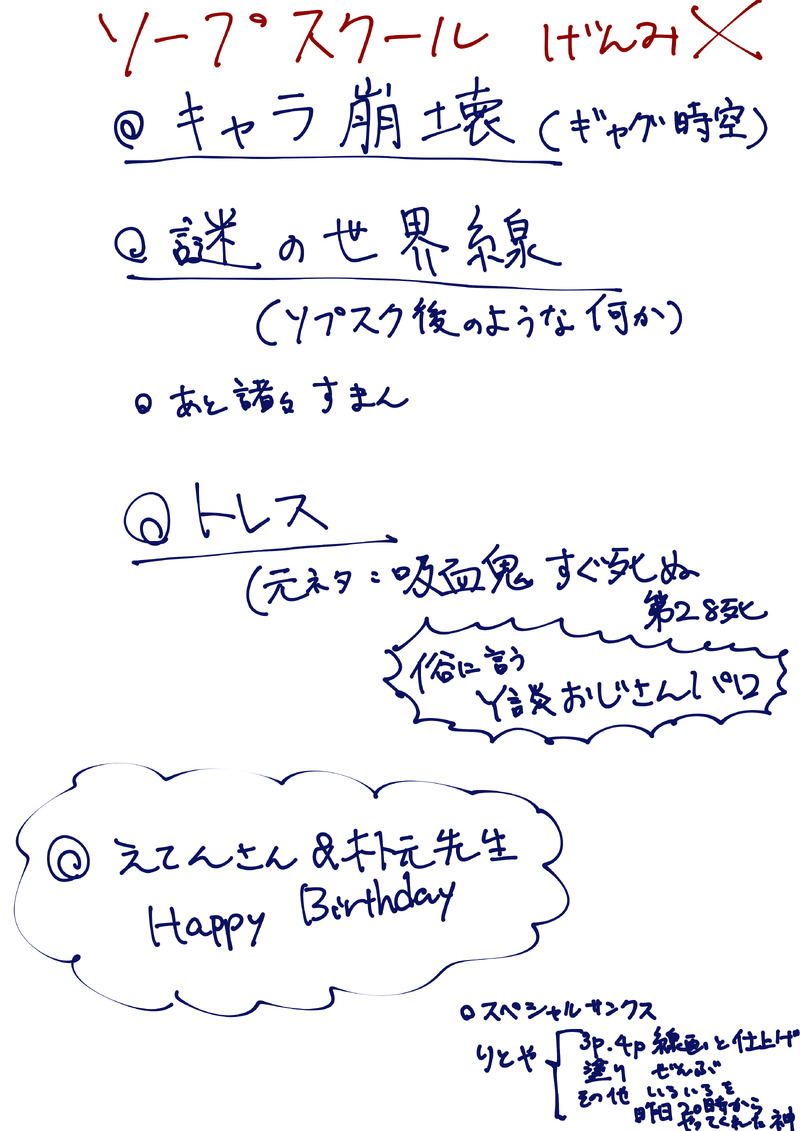 ソープスクール げんみ×
◎キャラ崩壊(ギャグ時空)
◎謎の世界線
(ソプスク後のような何か)
◎あと諸々すまん
◎トレス
(元ネタ:吸血鬼すぐ死ぬ
第28死
俗に言う
Y談おじさんパロ
◎えてんさん&朴元先生
Happy Birthday
○スペシャルサンクス
りとや
3p.4p 線画と仕上げ
塗り ぜんぶ
その他 いろいろを
昨日20時から
やってくれた神